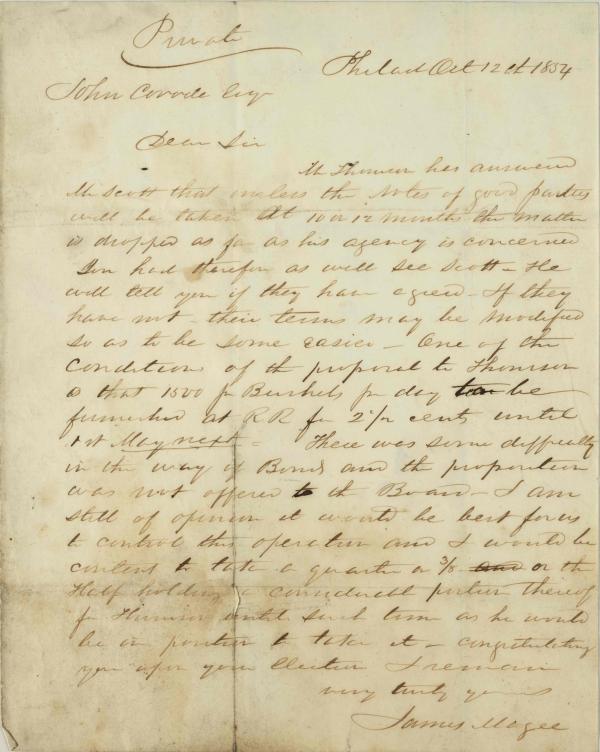 Private
Philad Oct 12th 1854
John Covode Esqr
Dear Sir
Mr Thomson has answered
Mr Scott that unless the Notes of good parties
will be taken at 10 or 12 months the matter
is dropped as far as his agency is concerned
You had therefore as well see Scott - He
will tell you if they have agreed - If they
have not - their terms may be modified
so as to be some easier - One of the
Conditions of the proposal to Thomson
is that 1500 Bushels pr day be
furnished at RR for 2 1/2 cents until
1st May next - There was some difficulty
in the way of Bonds and the proposition
was not offered to the Board - I am
still of opinion it would be best for us
to control this operation and I would be
content to take a quarter or 3/8 or the
Half holding a considerable portion thereof
for Thomson until such time as he would
be in position to take it - congratulating
you upon your Election I remain
very truly yours
James Magee